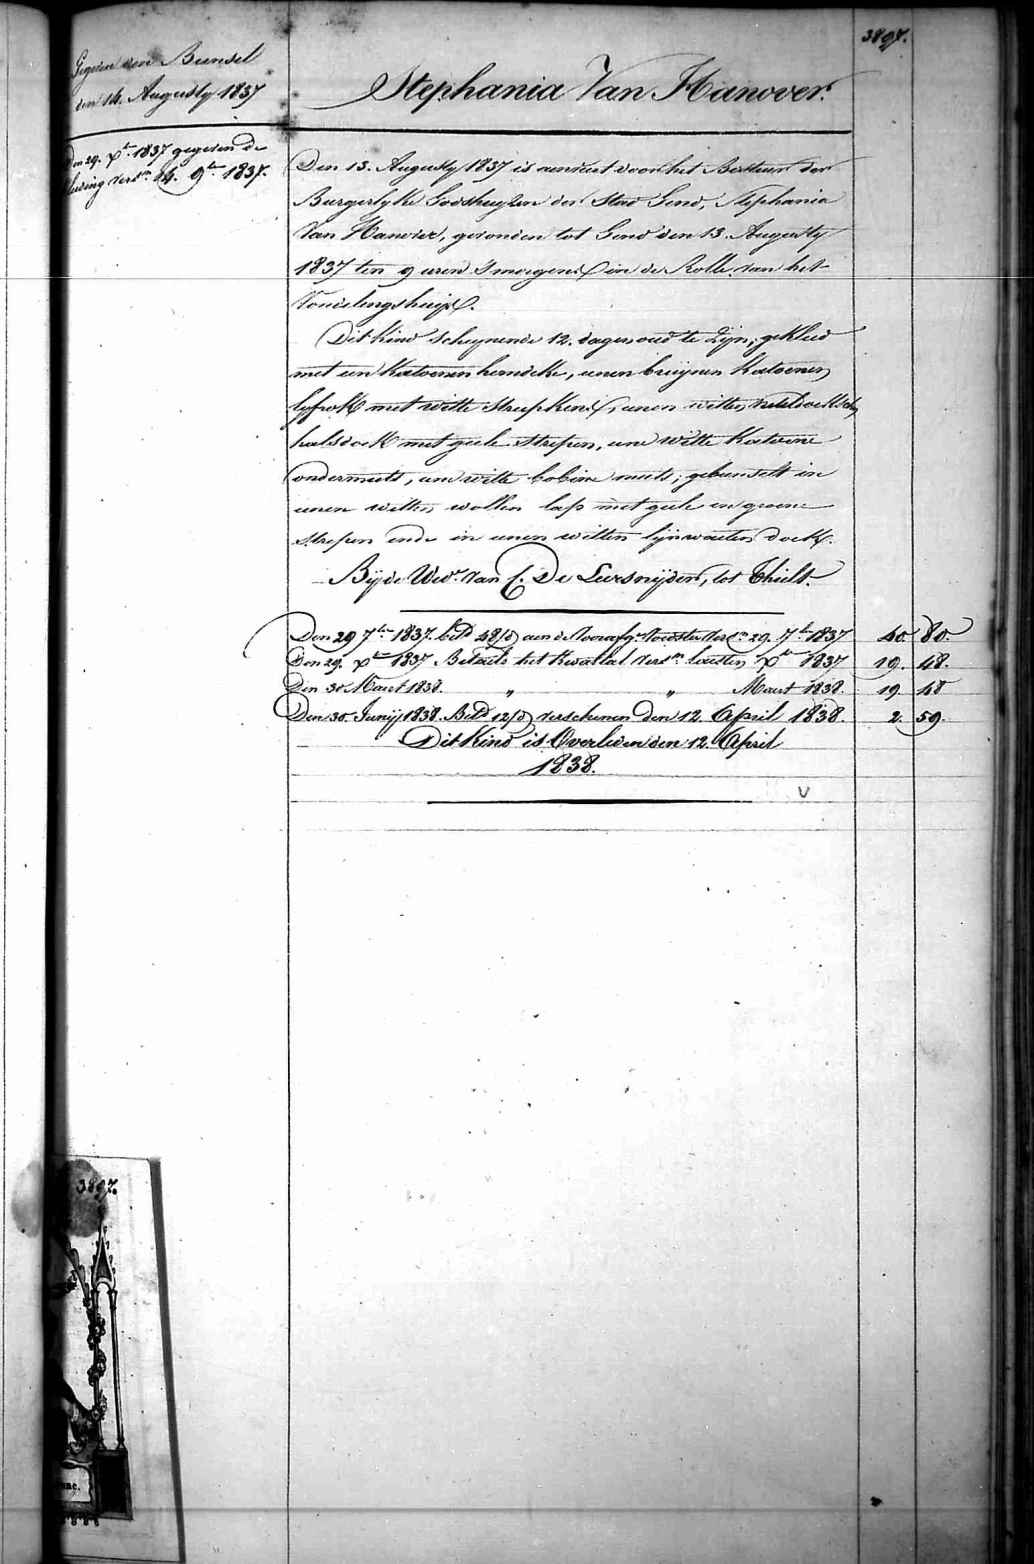 3897.
Gegeven een Bunsel
den 14. Augusty 1837
Stephania Van Hanover.
Den 29. Xbr 1837 gegeven de
kleeding versn 14. 9br 1837.
Den 13. Augusty 1837 is aenveert door het Bestuur der
Burgerlyke Godshuyzen der Stad Gend, Stephania
Van Hanover, gevonden tot Gend den 13. Augusty
1837 ten 9 uren 's morgens in de Rolle van het
Vondelingshuijs.
Dit kind schynende 12. dagen oud te zyn, gekleed
met een katoenen hemdeke, eenen bruynen katoenen
lyfrok met witte streepkens, eenen witten neteldoekschen
halsdoek met geele strepen, eene witte katoene
ondermuts, eene witte bobine muts; gebunselt in
eenen witten wollen lap met geele en groene
strepen ende in eenen witten lijnwaeten doek.
By de Wede Van C. De Leersnijder, tot Thielt.
Den 29 7bre 1837. betd 48/d aen de voorafge Voedster versn 29. 7br 1837 40. 80.
Den 29. Xbre 1837 Betaelt het kwartael versn laesten Xbr 1837 19. 48.
Den 30 Maert 1838. " " Maert 1838. 19 48
Den 30. Junij 1838. Betd 12/d verschenen den 12. April 1838. 2. 59.
Dit Kind is Overleden den 12. April
1838.
3897.